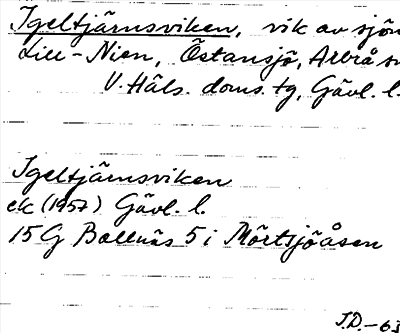 Igeltjärnsviken, vik av sjön
Lill-Nien, Östansjö, Arbrå sn
V. Häls. doms. tg, Gävl. l.
Igeltjärnsviken
ek (1957) Gävl. l.
15 G Bollnäs 5 i Mörtsjöåsen
J.D.-63